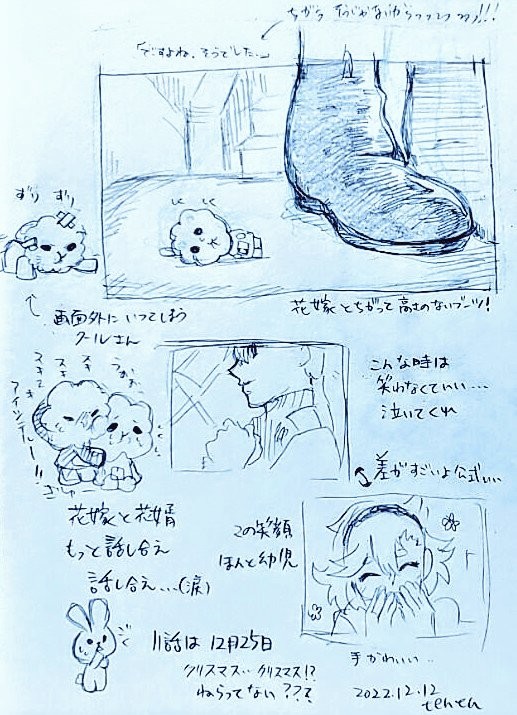 ちがう そうじゃないから つつつつつ!!!
「ですよね、そうでした…」
しく しく
ずり ずり
画面外にいってしまう
クールさん
花嫁とちがって高さのないブーツ!
こんな時は
笑わなくていい…
泣いてくれ
差がすごいよ公式…
花嫁と花婿
もっと話し合え
話し合え…(涙)
この笑顔
ほんと幼児
11話は 12月25日
クリスマス… クリスマス!?
ねらってない???
手がわいい…
2022.12.12
tenten